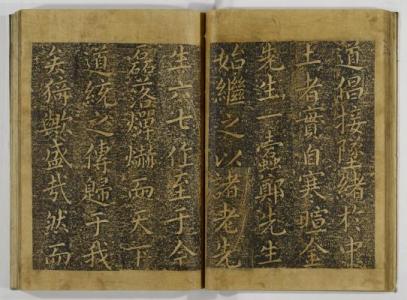 道倡接墜緒於中
土者實自寒暄金
先生一蠹鄭先生
始繼之以諸老先
生六七作至于今
磊落燀爀而天下
道統之傳歸于我
矣猗歟盛哉然而